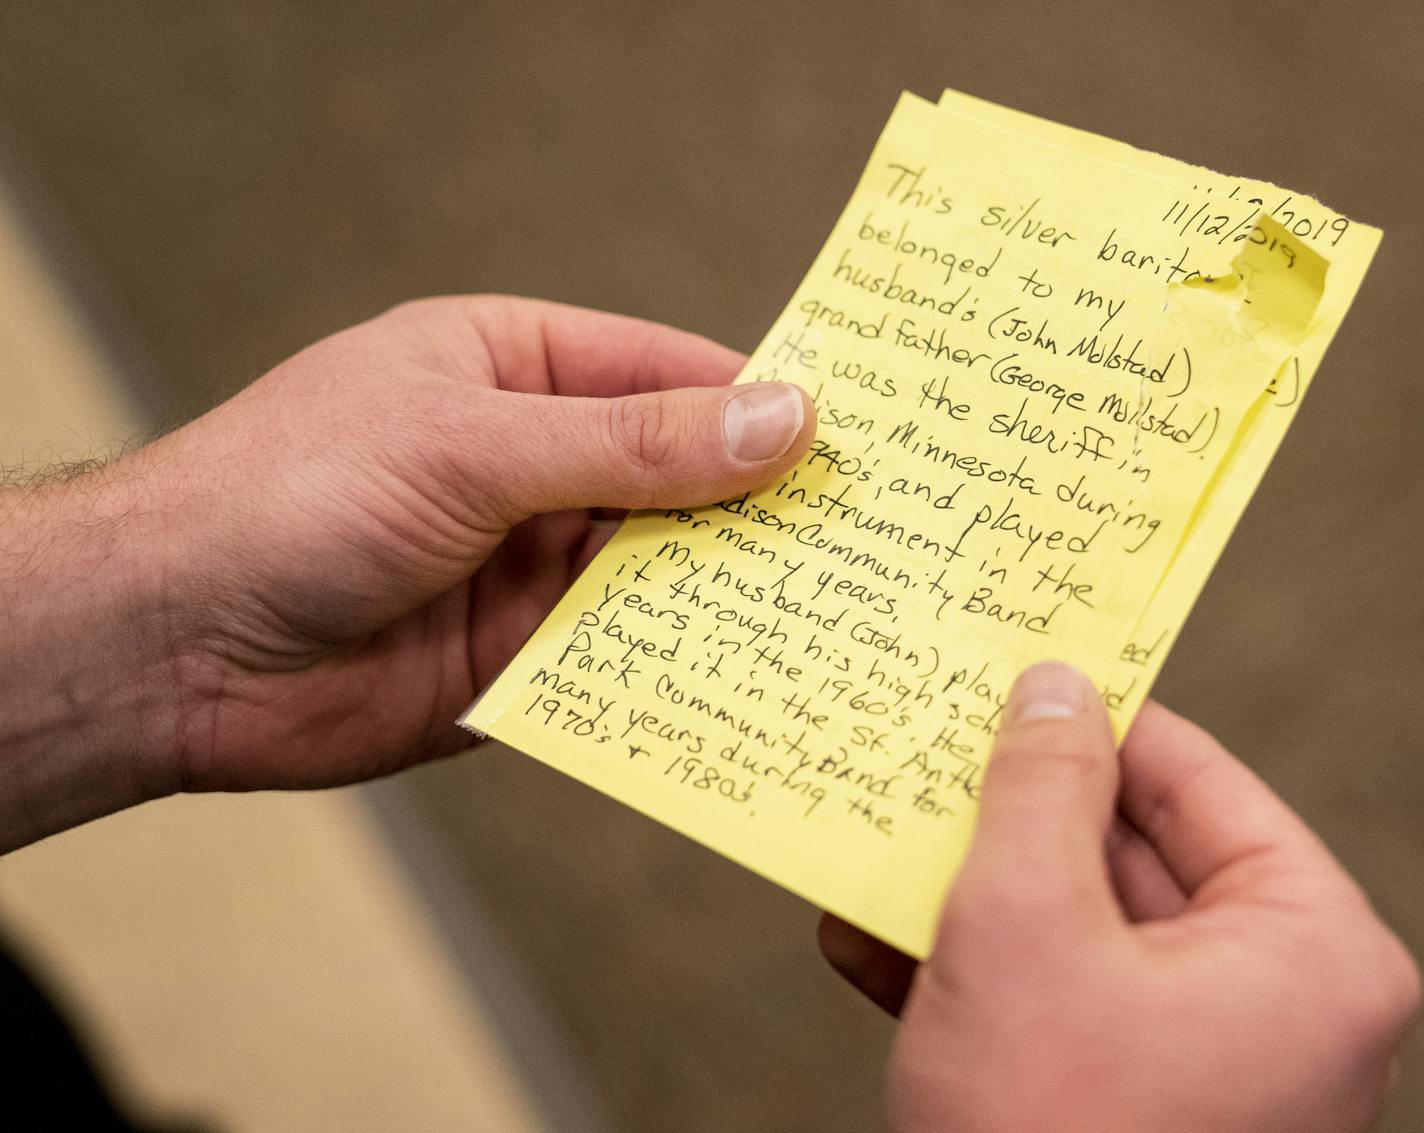 11/12/2019
11/12/2019
This silver
belonged to my
husband's (John Molstad)
grand father (George Molstad).
He was the sheriff in
Minnesota during
and played
instrument in the
Community Band
for many years.
My husband (John) played
it through his high
years in the 1960's. He
played it in the St.
Park Community Band for
many years during the
1970's + 1980's.